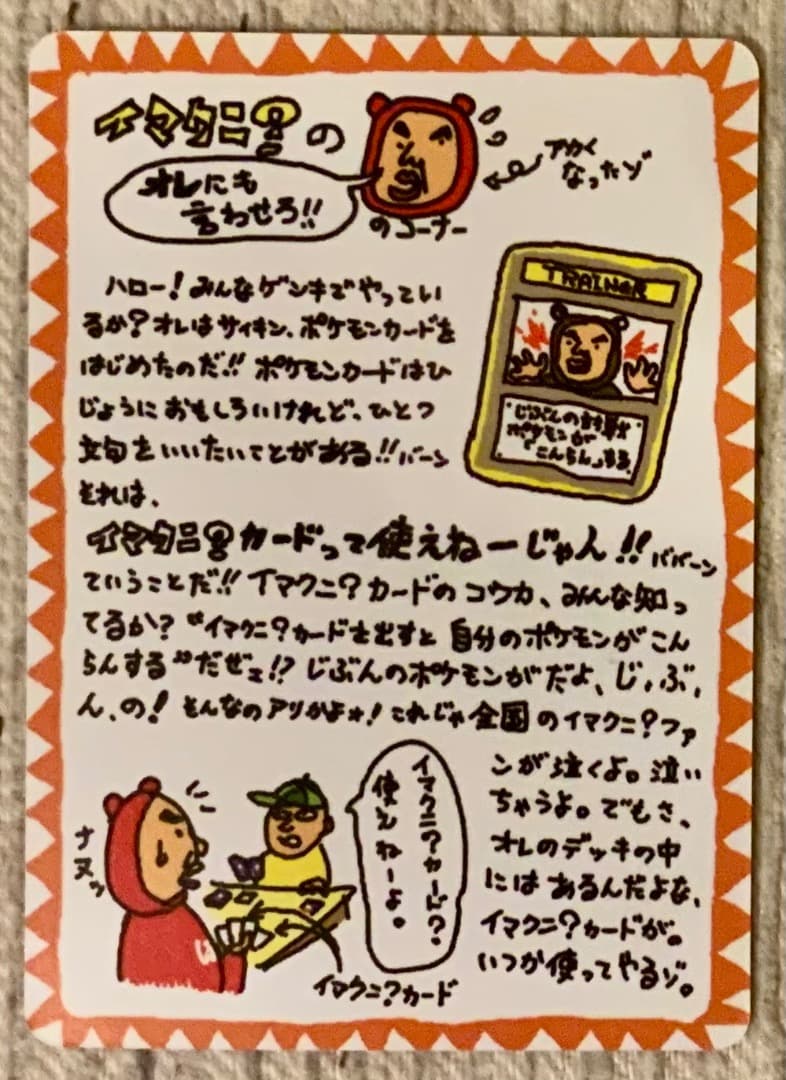 イマクニ?の
オレにも
言わせろ!!
のコーナー
アカく
なったゾ
TRAINER
じぶんの
ポケモンが
「こんらん」する
ハロー!みんなゲンキでやってい
るか?オレはサイキン、ポケモンカードを
はじめたのだ!!ポケモンカードはひ
じょうにおもしろいけれど、ひとつ
文句をいいたいことがある!!バーン
それは、
イマクニ?カードって使えねーじゃん!!ババーン
ていうことだ!!イマクニ?カードのコウカ、みんな知っ
てるか?“イマクニ?カードを出すと自分のポケモンがこん
らんする”だぜェ!?じぶんのポケモンがだよ、じ、ぶ、
ん、の!そんなのアリかよォ!これじゃ全国のイマクニ?ファ
ンが泣くよ。泣い
ちゃうよ。でもさ、
オレのデッキの中
にはあるんだよな、
イマクニ?カードが。
いつか使ってやるゾ。
イマクニ?カード?
使えねーよ。
ナヌッ
イマクニ?カード